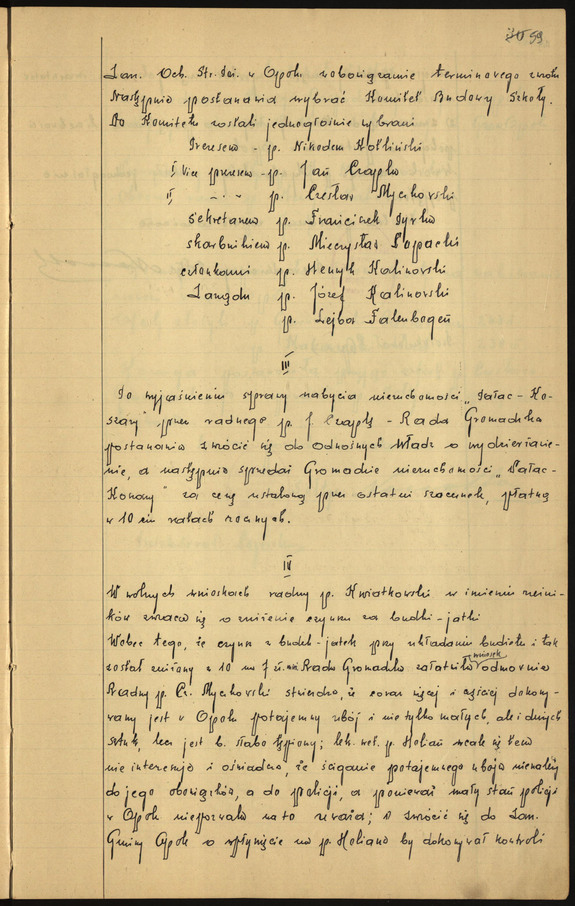 59
Zarz. Och. Str. Poż. w Opolu zobowiązanie terminowego zwrotu
Następnie postanawia wybrać Komitet Budowy Szkoły.
Do Komitetu zostali jednogłośnie wybrani
Prezesem - p. Nikodem Kotliński
I Vice prezesem - p. Jan Czapla
II " - " - p. Czesław Mychowski
Sekretarzem p. Franciszek Pyrka
skarbnikiem p. Mieczysław Łopacki
członkami p. Henryk Kalinowski
Zarządu p. Józef Kalinowski
p. Lejba Falenbogen
III
Po wyjaśnieniu sprawy nabycia nieruchomości „Pałac - Ko-
szary" przez radnego p. J. Czaplę - Rada Gromadzka
postanawia zwrócić się do odnośnych Władz o wydzierżawie-
nie, a następnie sprzedaż Gromadzie nieruchomości „Pałac-
Koszary" za cenę ustaloną przez ostatni szacunek, płatną
w 10 ciu ratach rocznych.
IV
W wolnych wnioskach radny p. Kwiatkowski w imieniu rzeźni-
ków zwraca się o zniżenie czynszu za budki - jatki
Wobec tego, że czynsz z budek - jatek przy układaniu budżetu i tak
został zniżony z 10 na 7 zł. Rada Gromadzka załatwiła wniosek odmownie
Radny p. Cz. Mychowski stwierdza, że coraz więcej i częściej dokony-
wany jest w Opolu potajemny ubój i nie tylko małych, ale i dużych
sztuk, lecz jest b. słabo tępiony; lek. wet. p. Holian wcale się tem
nie interesuje i oświadcza, że ściganie potajemnego uboju nienależy
do jego obowiązków, a do policji, a ponieważ mały stan policji
w Opolu niepozwala na to zwrócić się do Zarz.
Gminy Opole o wpłynięcie na p. Holiana by dokonywał kontroli